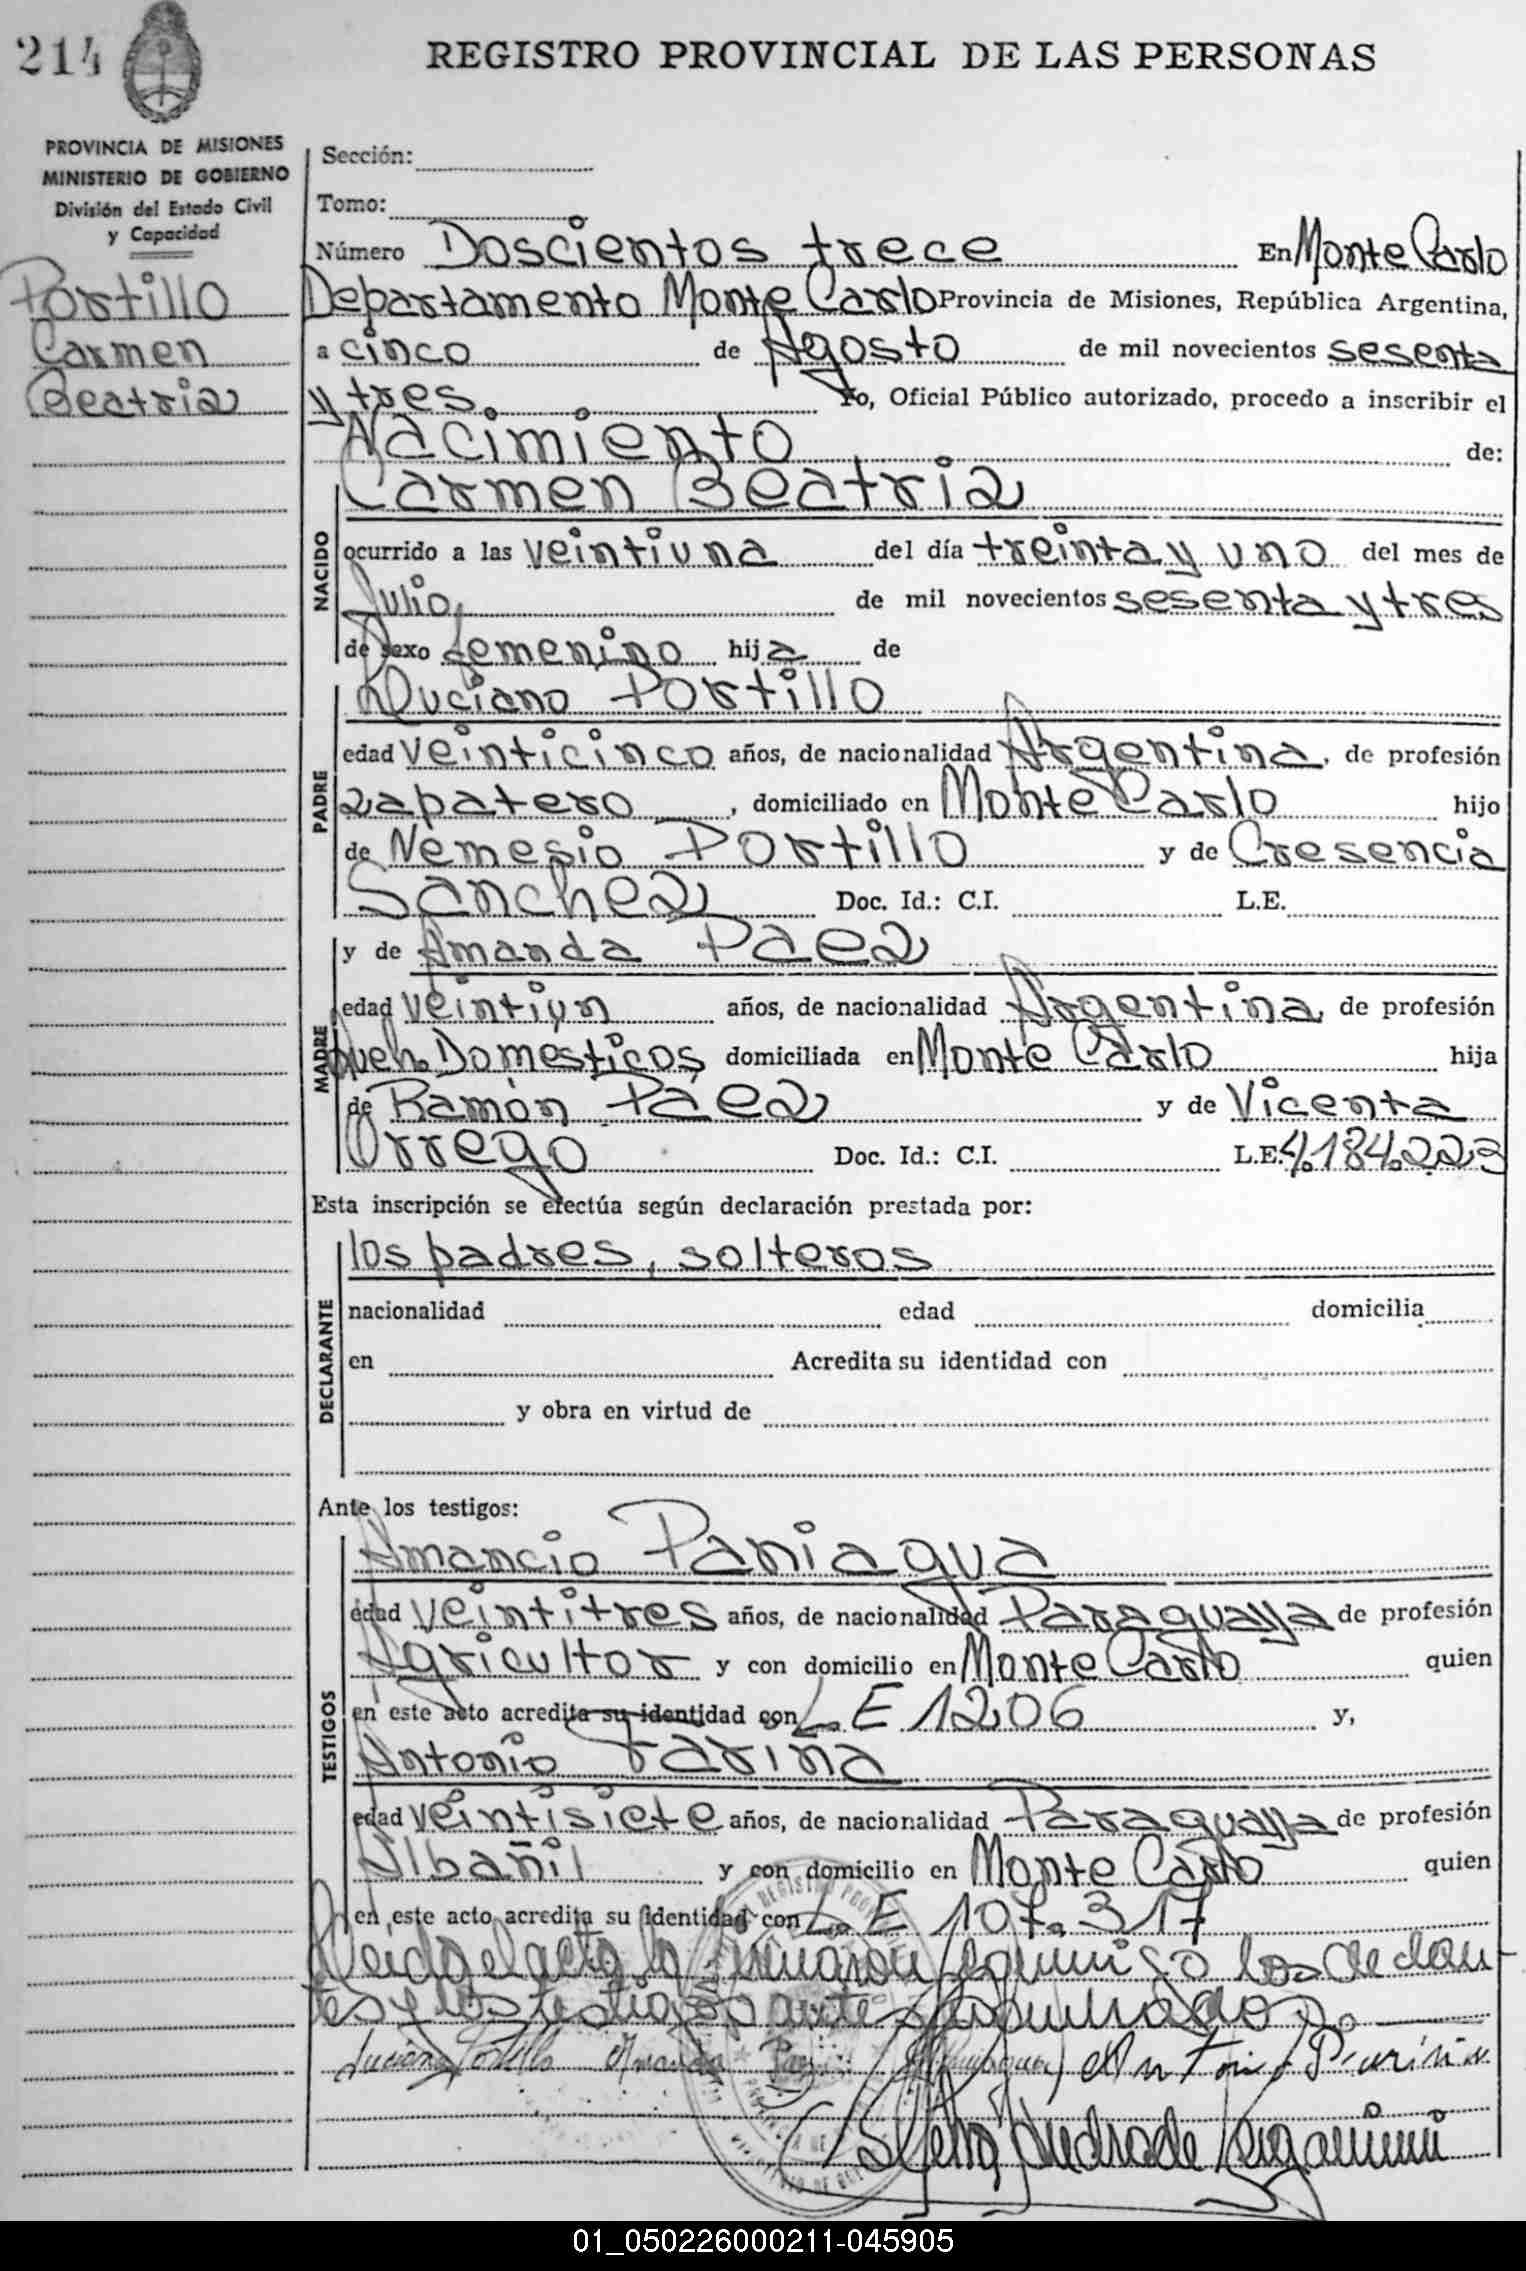 214
REGISTRO PROVINCIAL DE LAS PERSONAS
PROVINCIA DE MISIONES
MINISTERIO DE GOBIERNO
División del Estado Civil
y Capacidad
Portillo
Carmen
Beatriz
Sección:
Tomo:
Número Doscientos trece En Monte Carlo
Departamento Monte Carlo Provincia de Misiones, República Argentina,
a cinco de Agosto de mil novecientos sesenta
y tres. Yo, Oficial Público autorizado, procedo a inscribir el
Nacimiento de:
NACIDO
Carmen Beatriz
ocurrido a las veintiuna del día treinta y uno del mes de
Julio, de mil novecientos sesenta y tres
de sexo femenino hija de
PADRE
Luciano Portillo
edad veinticinco años, de nacionalidad Argentina, de profesión
zapatero, domiciliado en Monte Carlo hijo
de Nemesio Portillo y de Cresencia
Sanchez Doc. Id.: C.I. L.E.
MADRE
y de Amanda Páez
edad veintiun años, de nacionalidad Argentina, de profesión
Queh. Domésticos domiciliada en Monte Carlo hija
de Ramón Páez y de Vicenta
Orrego Doc. Id.: C.I. L.E. 4.184.223
Esta inscripción se efectúa según declaración prestada por:
DECLARANTE
los padres, solteros
nacionalidad edad domicilia
en Acredita su identidad con
y obra en virtud de
Ante los testigos:
TESTIGOS
Amancio Paniagua
edad veintitres años, de nacionalidad Paraguaya de profesión
Agricultor y con domicilio en Monte Carlo quien
en este acto acredita su identidad con L. E 1206 y,
Antonio Fariña
edad veintisiete años, de nacionalidad Paraguaya de profesión
Albañil y con domicilio en Monte Carlo quien
en este acto acredita su identidad con L. E 107.317
Leido el acto la firmaron conmigo los declaran-
tes y los testigos antes nombrados.
Luciano Portillo Amanda Paez Antonio Fariña
Andrade
01_050226000211-045905